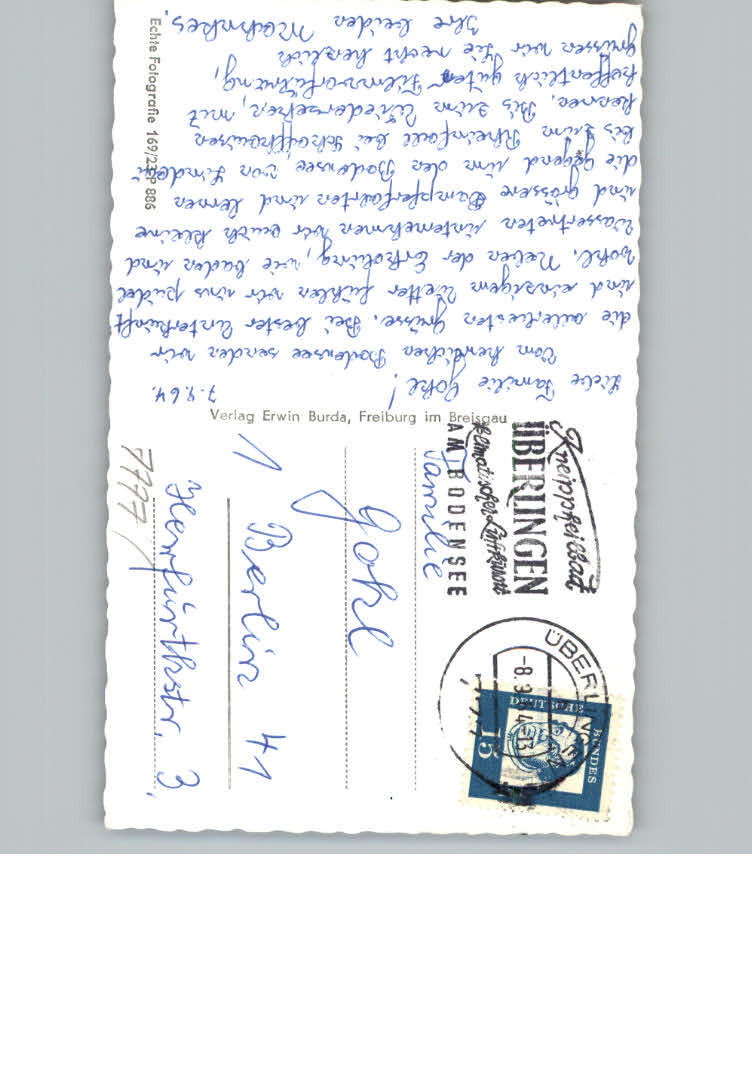 7.9.64.
Liebe Familie Gohl!
Vom herrlichen Bodensee senden wir
die allerliebsten Grüsse. Bei bester Unterkunft
und einzigem Wetter fühlen wir uns pudel
wohl. Neben der Erholung, wie baden und
Wassertreten unternehmen wir auch kleine
und grössere Dampferfahrten und lernen
die Gegend um den Bodensee von Lindau
bis zum Rheinfall bei Schaffhausen
kennen. Bis zum Wiedersehen, mit
hoffentlich guter Filmvorführung,
grüssen wir Sie recht herzlich
Ihre beiden Mahnkes.
Echte Fotografie 169/23 PP 886
Verlag Erwin Burda, Freiburg im Breisgau
Kneippheilbad
ÜBERLINGEN
Klimatischer Luftkurort
AM BODENSEE
ÜBERLINGEN
-8.9.64-13
DEUTSCHE
BUNDES
15
Familie
Gohl
1 Berlin 41
Herrfurthstr. 3.
7777